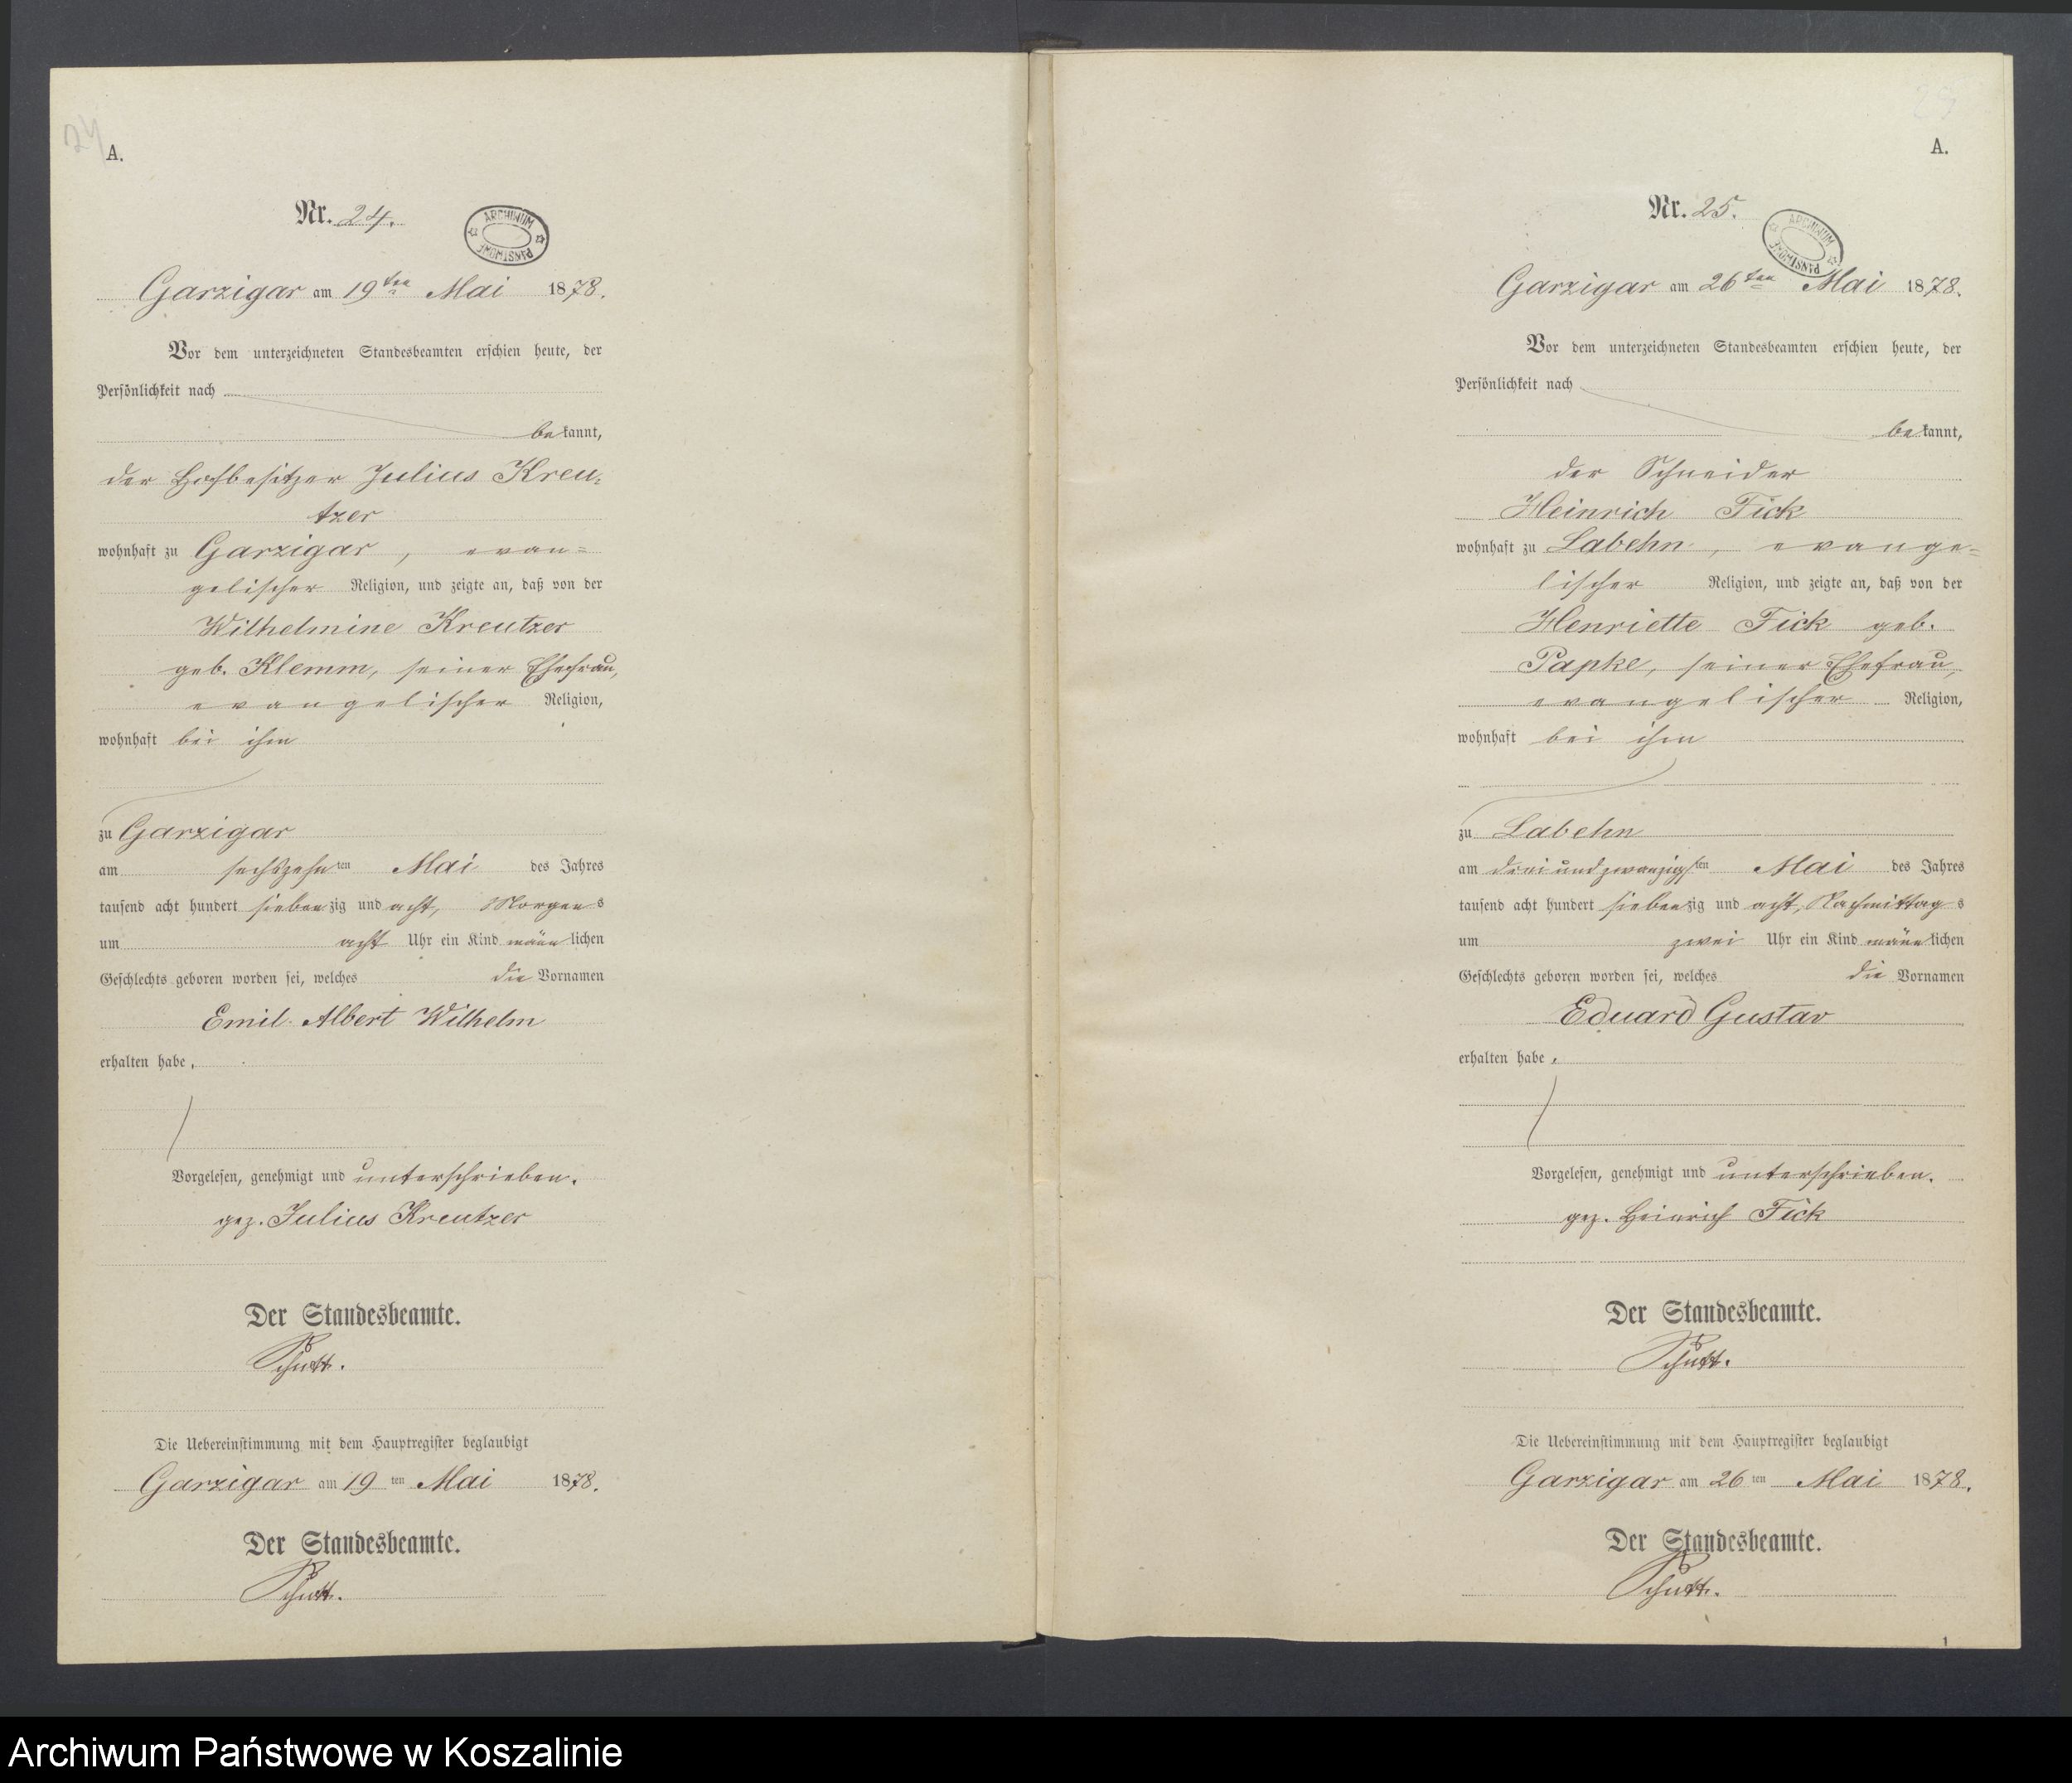 24
A.
Nr. 24.
ARCHIWUM PAŃSTWOWE
Garzigar am 19ten Mai 1878.
Vor dem unterzeichneten Standesbeamten erschien heute, der
Persönlichkeit nach
bekannt,
der Hofbesitzer Julius Kreu-
tzer
wohnhaft zu Garzigar, evan=
gelischer Religion, und zeigte an, daß von der
Wilhelmine Kreutzer
geb. Klemm, seiner Ehefrau,
evangelischer Religion,
wohnhaft bei ihm
zu Garzigar
am sechszehnten Mai des Jahres
tausend acht hundert siebenzig und acht, Morgens
um acht Uhr ein Kind männlichen
Geschlechts geboren worden sei, welches die Vornamen
Emil Albert Wilhelm
erhalten habe.
Vorgelesen, genehmigt und unterschrieben.
gez. Julius Kreutzer
Der Standesbeamte.
Die Uebereinstimmung mit dem Hauptregister beglaubigt
Garzigar am 19ten Mai 1878.
Der Standesbeamte.
25
A.
Nr. 25.
ARCHIWUM PAŃSTWOWE
Garzigar am 26ten Mai 1878.
Vor dem unterzeichneten Standesbeamten erschien heute, der
Persönlichkeit nach
bekannt,
der Schneider
Heinrich Fick
wohnhaft zu Labehn, evange=
lischer Religion, und zeigte an, daß von der
Henriette Fick geb.
Papke, seiner Ehefrau,
evangelischer Religion,
wohnhaft bei ihm
zu Labehn
am dreiundzwanzigsten Mai des Jahres
tausend acht hundert siebenzig und acht, Nachmittags
um zwei Uhr ein Kind männlichen
Geschlechts geboren worden sei, welches die Vornamen
Eduard Gustav
erhalten habe.
Vorgelesen, genehmigt und unterschrieben.
gez. Heinrich Fick
Der Standesbeamte.
Die Uebereinstimmung mit dem Hauptregister beglaubigt
Garzigar am 26ten Mai 1878.
Der Standesbeamte.
1
Archiwum Państwowe w Koszalinie